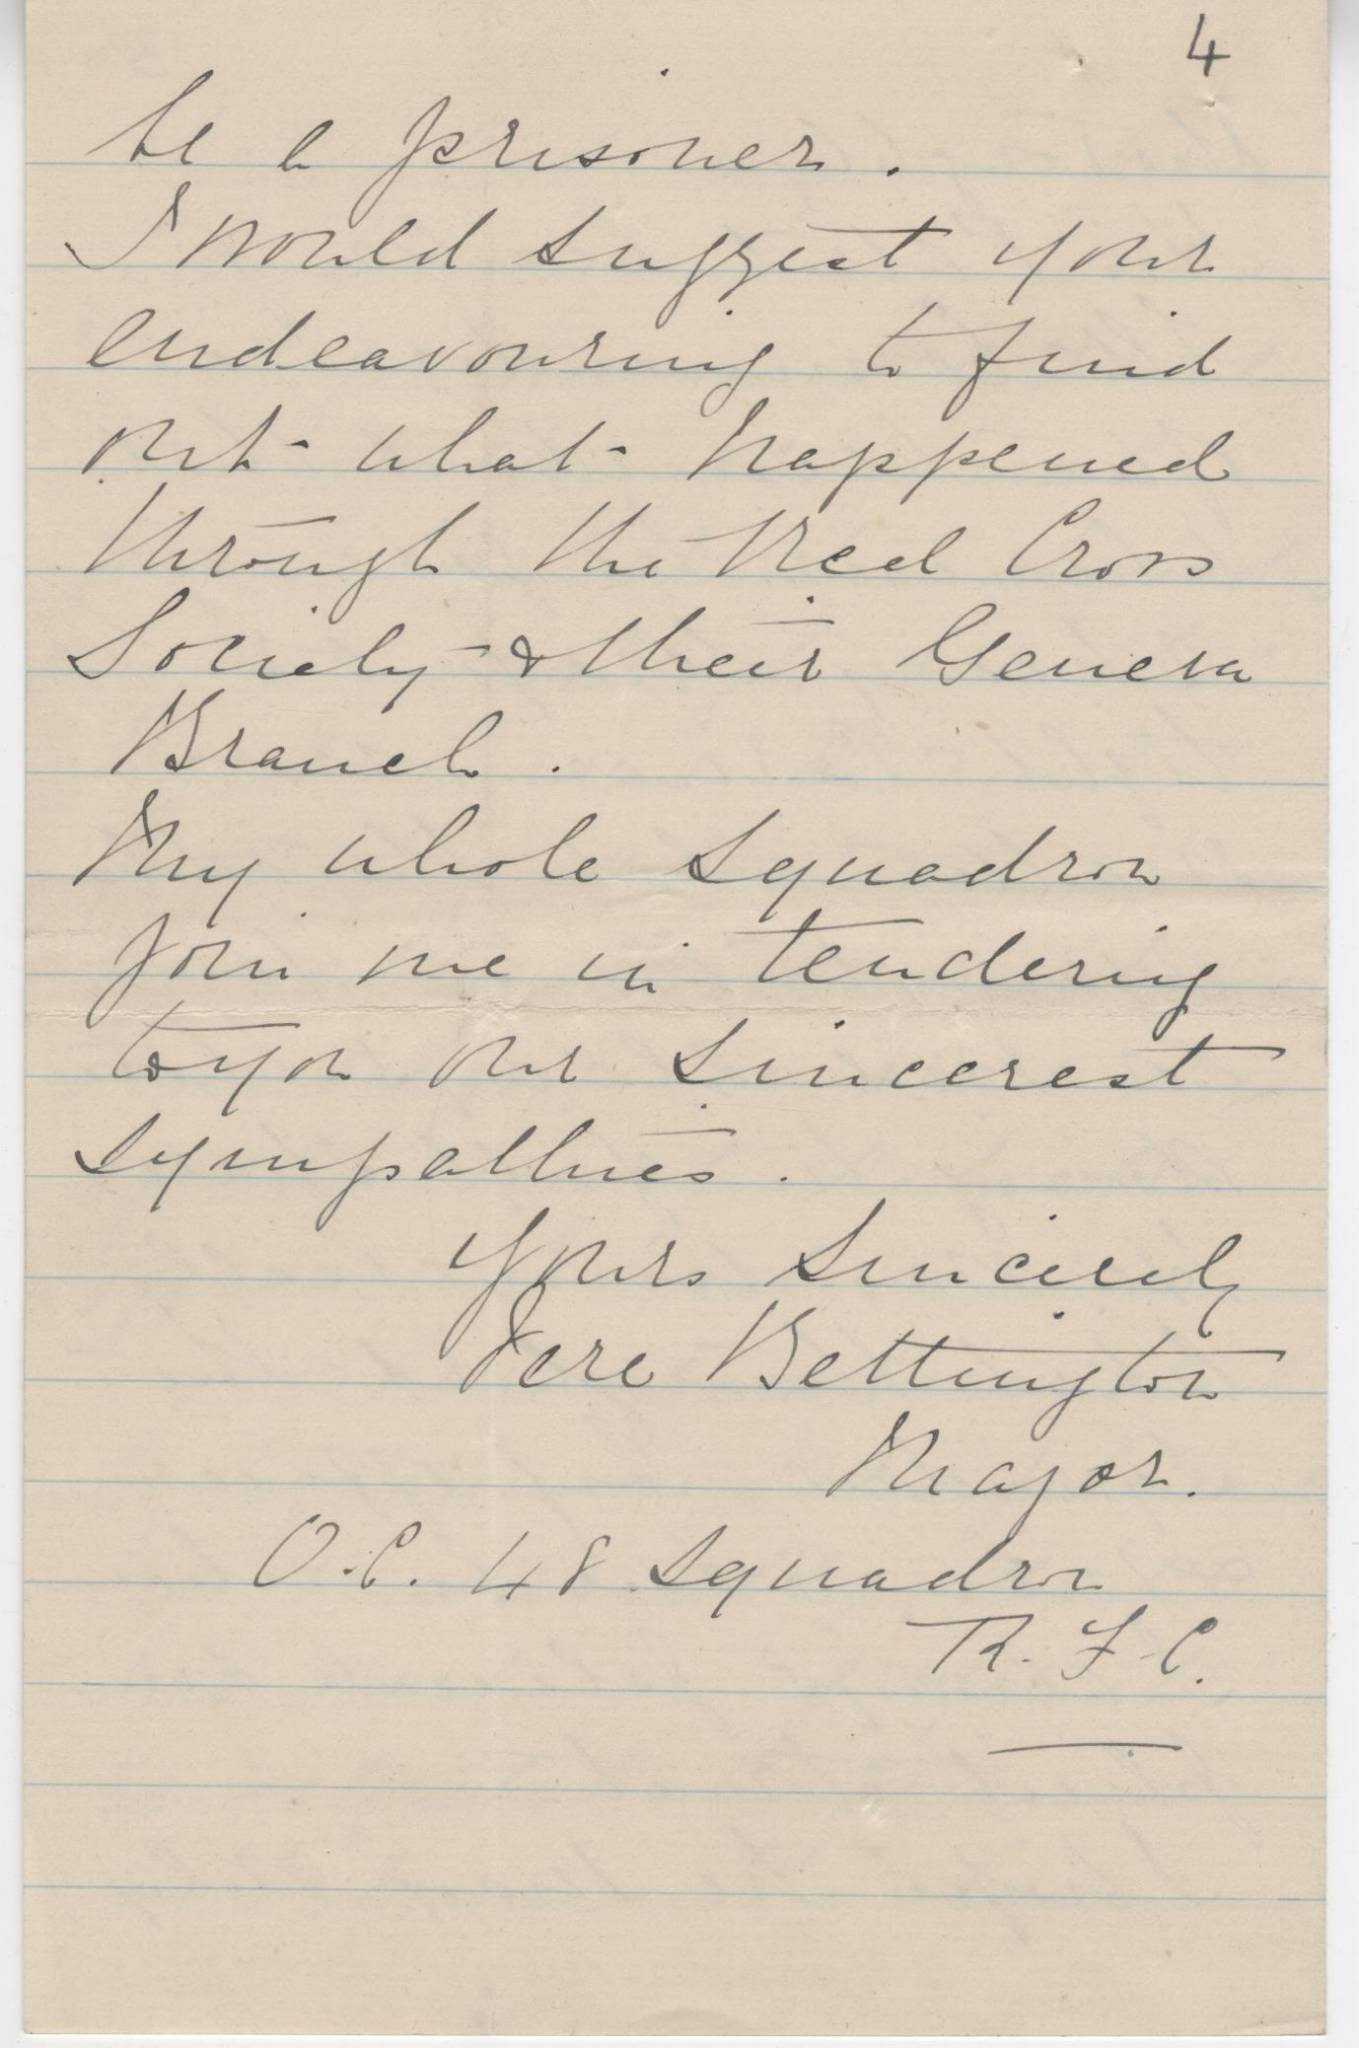 4
be a prisoner.
I would suggest your
endeavouring to find
out what happened
through the Red Cross
Society & their Geneva
Branch.
My whole squadron
join me in tendering
to you our sincerest
sympathies.
Yours sincerely
Vere Bettington
Major.
O.C. 48 Squadron
R.F.C.